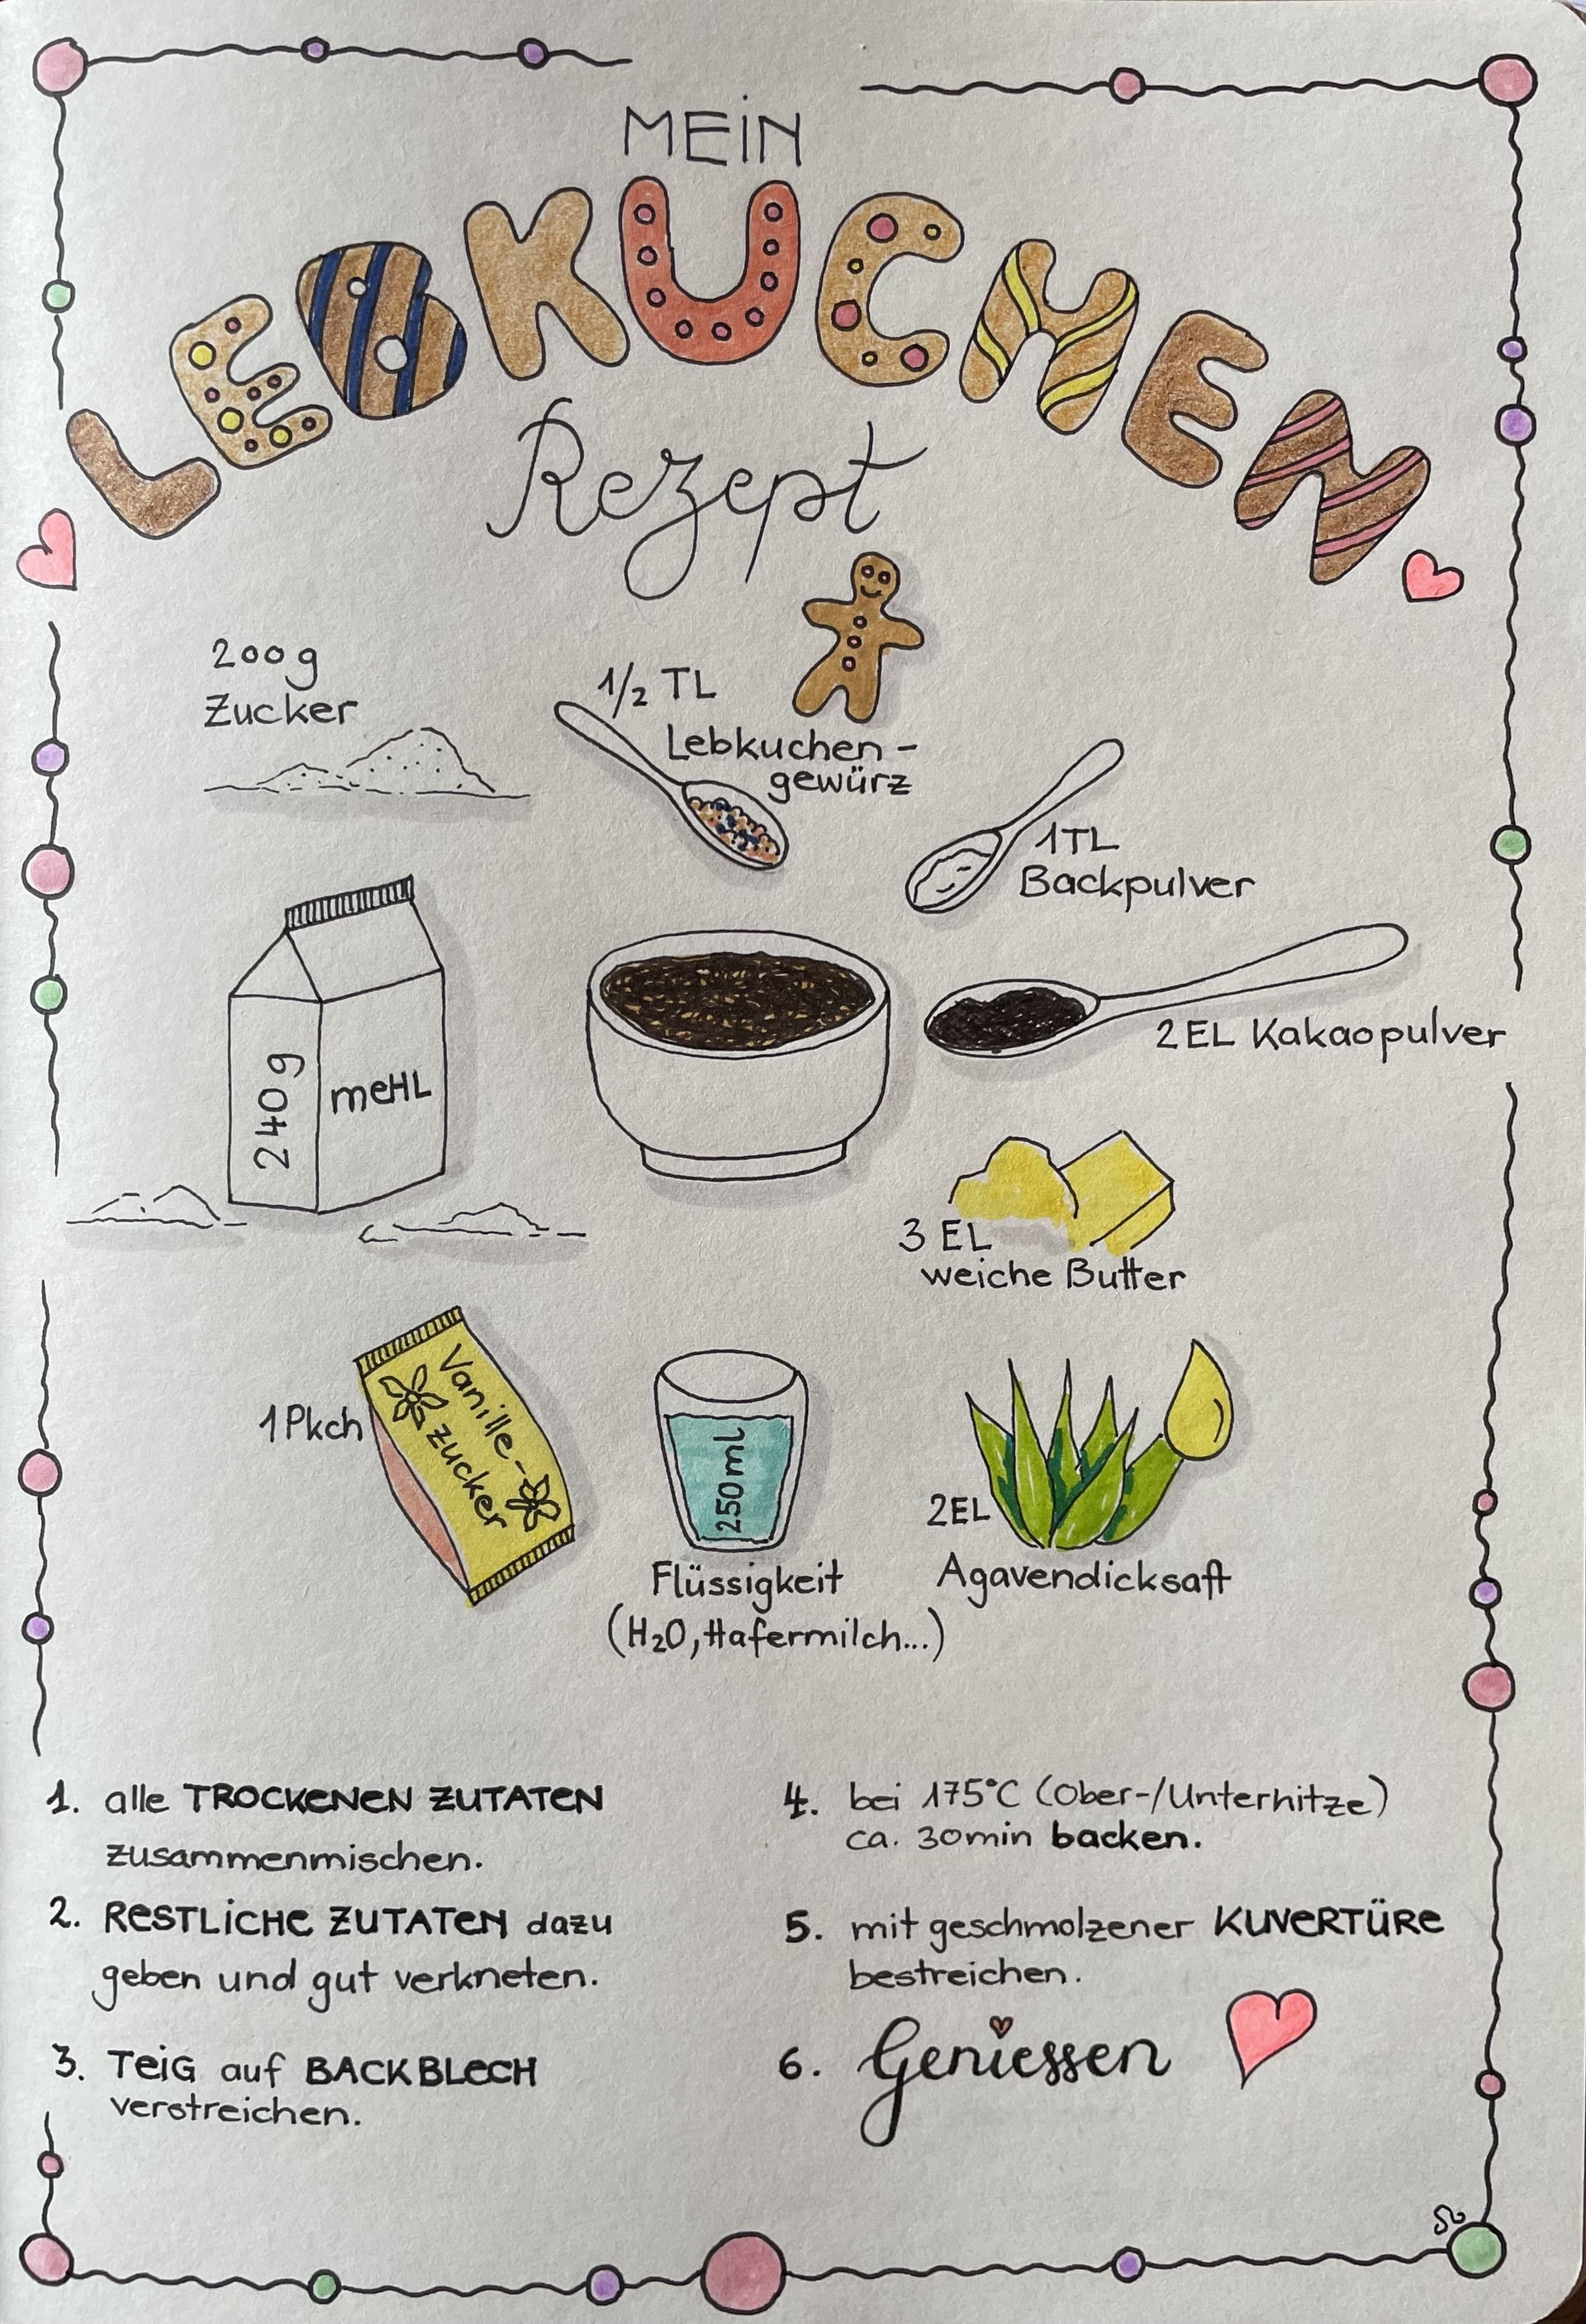 MEiN
LEBKUCHEN
Rezept
200g
Zucker
1/2 TL
Lebkuchen-
gewürz
1TL
Backpulver
240g
meHL
2EL Kakaopulver
3 EL
weiche Butter
1Pkch
Vanille-
zucker
250ml
Flüssigkeit
(H₂O, Hafermilch...)
2EL
Agavendicksaft
1. alle TROCKENEN ZUTATEN
zusammenmischen.
2. RESTLICHE ZUTATEN dazu
geben und gut verkneten.
3. TEIG auf BACKBLECH
verstreichen.
4. bei 175°C (Ober-/Unterhitze)
ca. 30min backen.
5. mit geschmolzener KUVERTÜRE
bestreichen.
6. Geniessen